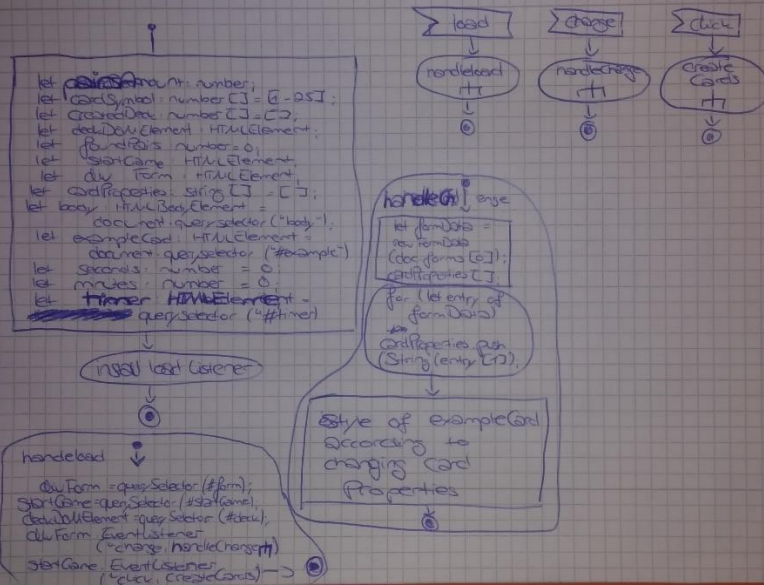 load
change
click
handleload
handleChange
create
Cards
let amount: number;
let cardSymbol: number[] = [1-25];
let createdDeck: number[] = [];
let deckDomElement: HTMLElement;
let foundPairs: number = 0;
let startGame: HTMLElement;
let divForm: HTMLElement;
let cardProperties: string[] = [];
let body: HTMLBodyElement =
document.querySelector("body");
let exampleCard: HTMLElement =
document.querySelector("#example")
let seconds: number = 0;
let minutes: number = 0;
let timer HTMLElement =
querySelector("#timer)
install load Listener
handleload
divForm = querySelector(#form);
startGame=querySelector(#startGame);
deckDomElement=querySelector(#deck);
divForm. EventListener
("change, handleChange
startGame. EventListener
("click, createCards)
handleCh enge
let formData =
new FormData
(doc.forms[0]);
cardProperties[];
for (let entry of
formData)
cardProperties.push
(String(entry[1]);
Style of exampleCard
according to
changing Card
Properties